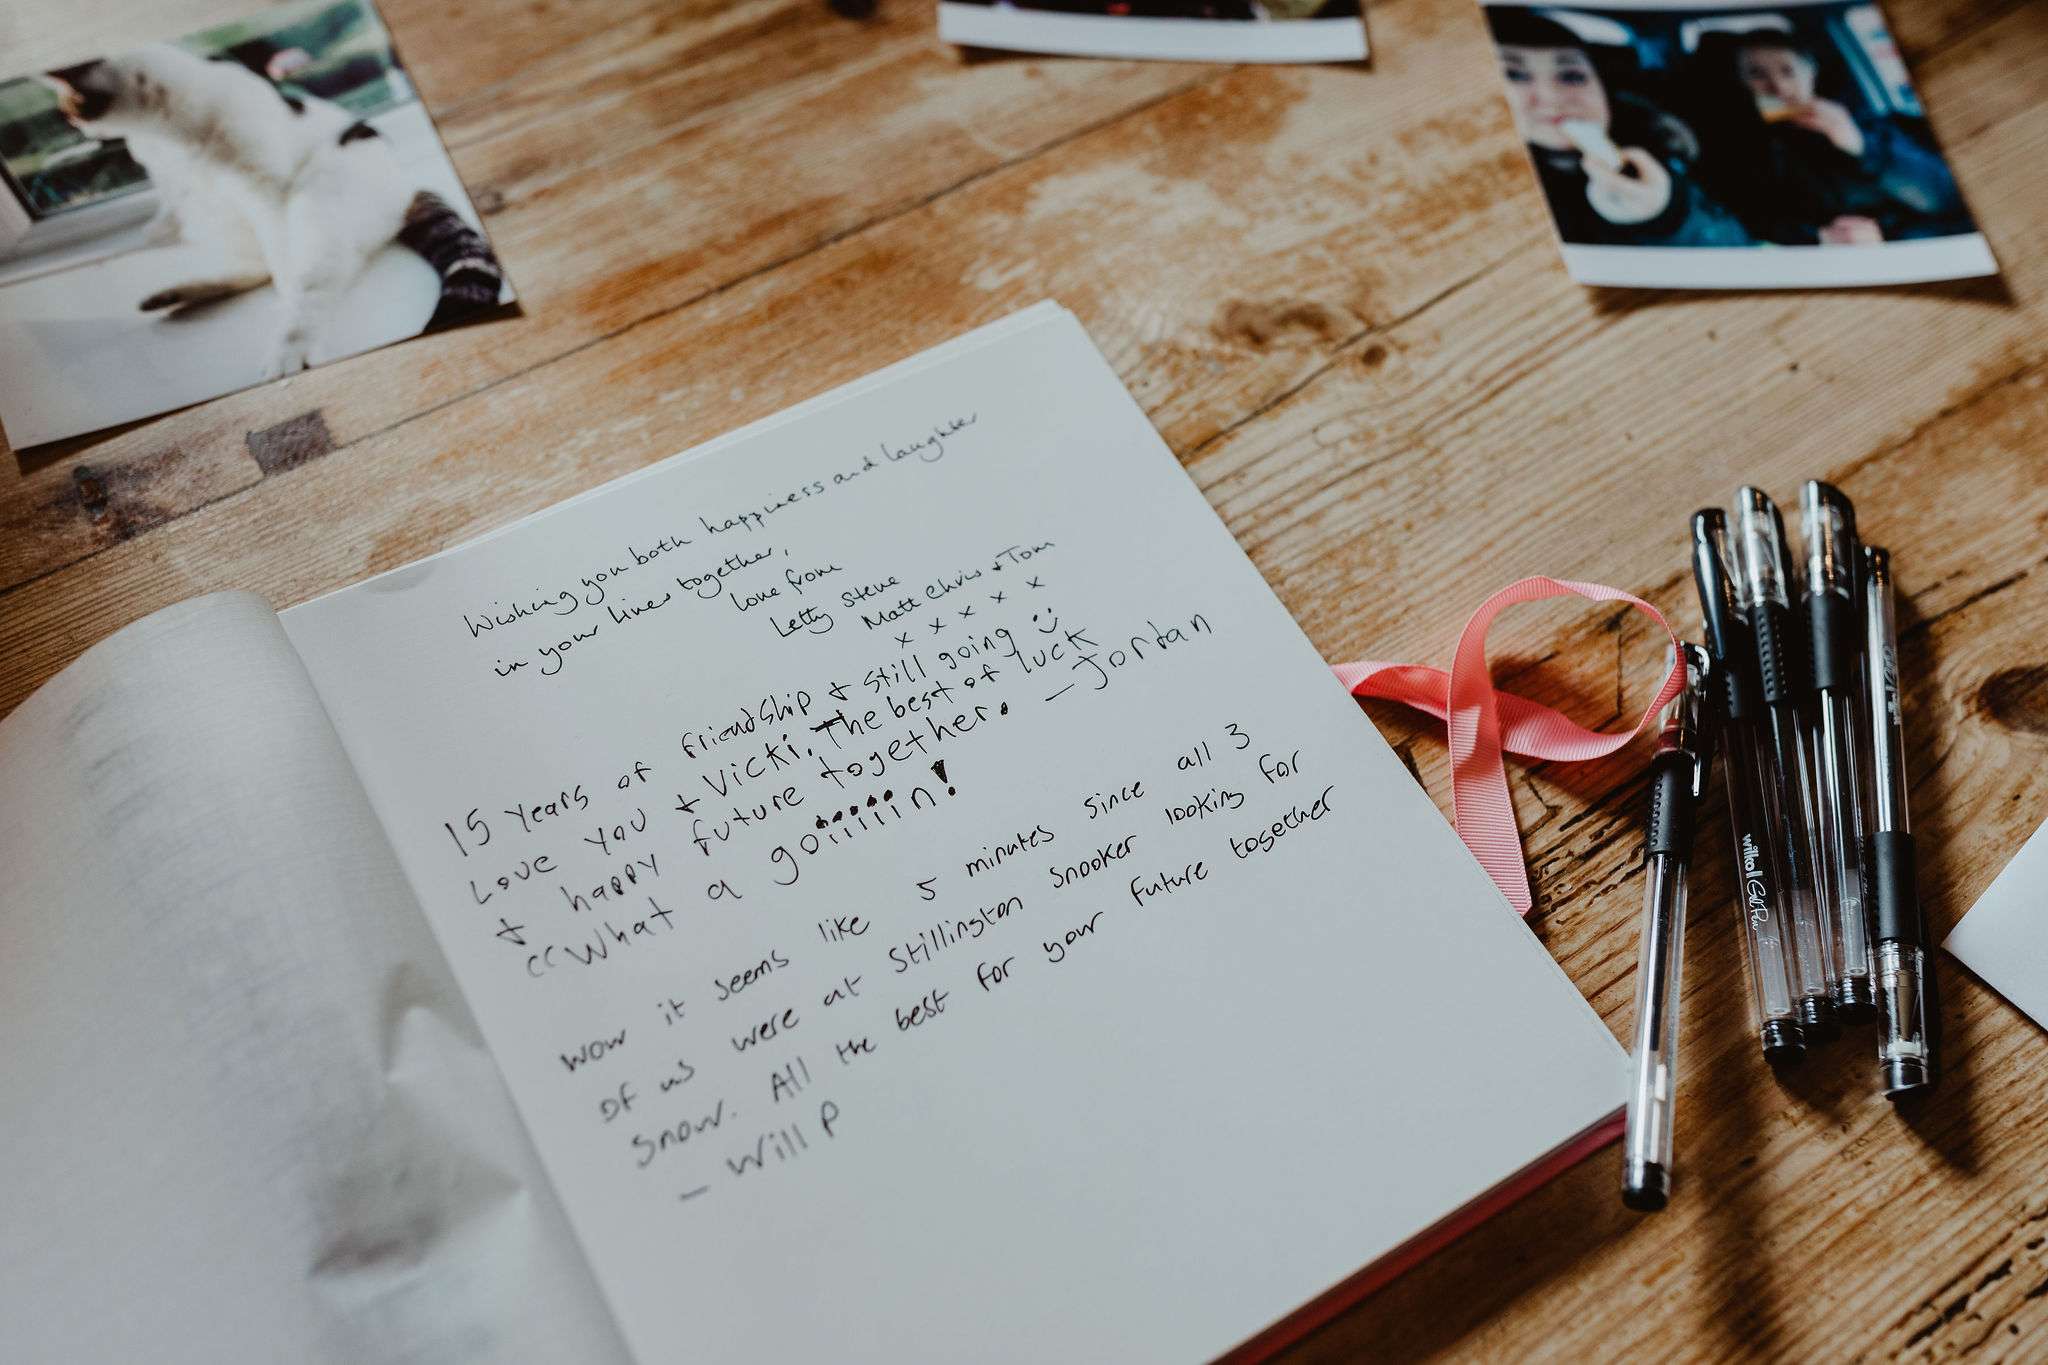 Wishing you both happiness and laughter
in your lives together,
love from
Letty Steve
Matt Chris & Tom
x x x x x
15 years of friendship & still going :)
Love you & Vicki. The best of luck
& happy future together. — Jordan
"What a goiiiiin!
wow it seems like 5 minutes since all 3
of us were at Stillington Snooker looking for
snow. All the best for your future together
— Will P
wilko Gel Pen